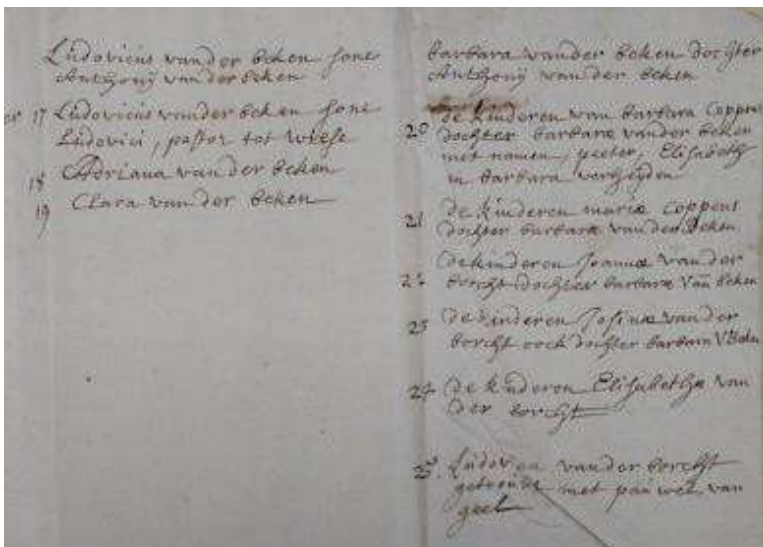 Ludovicus vander beken sone
Anthonij vander beken
17 Ludovicus vander beken sone
Ludovici, pastor tot wiese
18 Adriana van der beken
19 Clara van der beken
barbara vander beken dochter
Anthonij van der beken
20 de kinderen van barbara Coppens
dochter barbaræ vander beken
met namen, peeter, Elisabeth
barbara verheyden
21 de kinderen mariæ Coppens
dochter barbaræ van der beken
22 de kinderen Joannæ van der
borcht dochter barbaræ van beken
23 de kinderen Josinæ van der
borcht oock dochter barbara V Beken
24 de kinderen Elisabethæ van
der borcht
25 vander borcht
getrouwt met pauwel van
geel